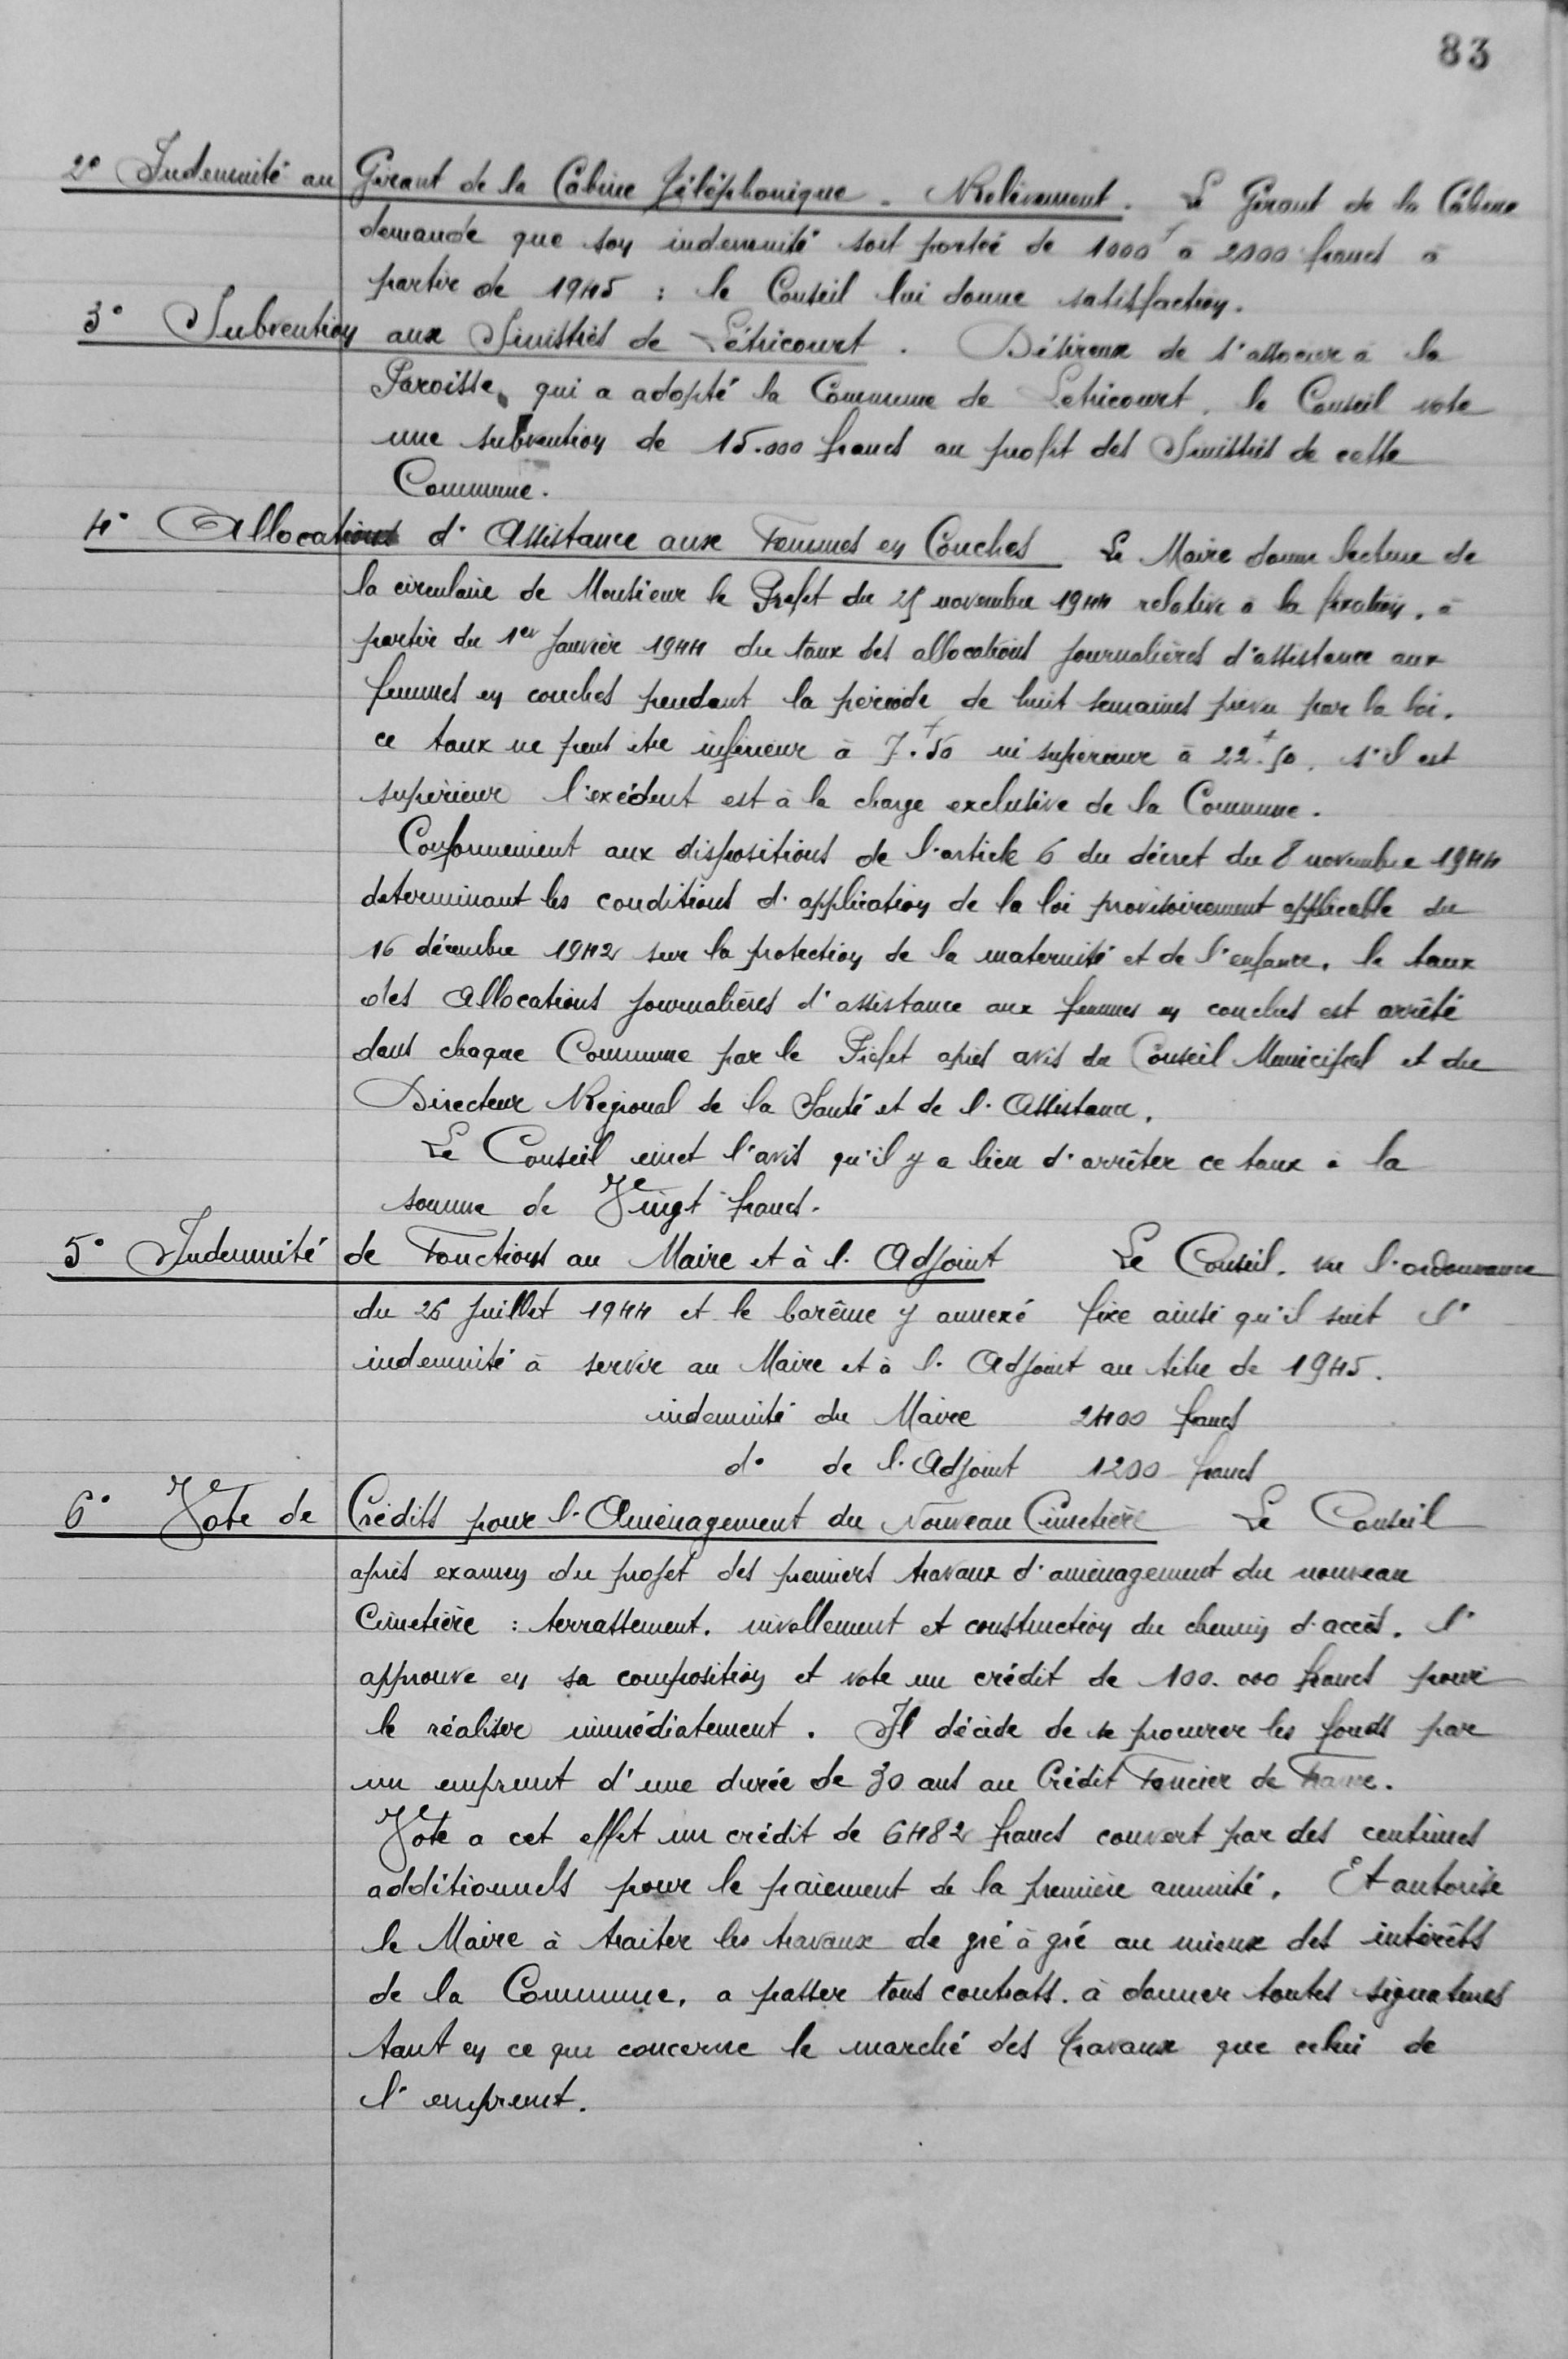 83
2° Indemnité au Gérant de la Cabine Téléphonique. Relèvement. Le Gérant de la Cabine
demande que son indemnité soit portée de 1000f à 2000 francs à
partir de 1945 : le Conseil lui donne satisfaction.
3° Subvention aux Sinistrés de Létricourt. Désireux de s'associer à la
Paroisse, qui a adopté la Commune de Letricourt, le Conseil vote
une subvention de 15.000 francs au profit des Sinistrés de cette
Commune.
4° Allocations d'Assistance aux Femmes en Couches Le Maire donne lecture de
la circulaire de Monsieur le Préfet du 25 novembre 1944 relative à la fixation, à
partir du 1er Janvier 1944 du taux des allocations journalières d'assistance aux
femmes en couches pendant la période de huit semaines prévu par la loi,
ce taux ne peut être inférieur à 7f.50 ni supérieur à 22f.50, s'il est
supérieur l'exédent est à la charge exclusive de la Commune.
Conformément aux dispositions de l'article 6 du décret du 8 novembre 1944
determinant les conditions d'application de la loi provisoirement applicable du
16 décembre 1942 sur la protection de la maternité et de l'enfance, le taux
des Allocations journalières d'assistance aux femmes en couches est arrêté
dans chaque Commune par le Préfet après avis du Conseil Municipal et du
Directeur Régional de la Santé et de l'Assistance.
Le Conseil émet l'avis qu'il y a lieu d'arrêter ce taux à la
somme de Vingt francs.
5° Indemnité de Fonctions au Maire et à l'Adjoint Le Conseil, vu l'ordonnance
du 26 Juillet 1944 et le barême y annexé fixe ainsi qu'il suit l'
indemnité à servir au Maire et à l'Adjoint au titre de 1945.
indemnité du Maire 2400 francs
d° de l'Adjoint 1200 francs
6° Vote de Crédits pour l'Aménagement du Nouveau Cimetière Le Conseil
après examen du projet des premiers travaux d'aménagement du nouveau
Cimetière : terrassement, nivellement et construction du chemin d'accès, l'
approuve en sa composition et vote un crédit de 100.000 francs pour
le réaliser immédiatement. Il décide de se procurer les fonds par
un emprunt d'une durée de 30 ans au Crédit Foncier de France.
Vote a cet effet un crédit de 6482 francs couvert par des centimes
additionnels pour le paiement de la première annuité. Et autorise
le Maire à traiter les travaux de gré à gré au mieux des intérêts
de la Commune, a passer tous contrats, à donner toutes signatures
tant en ce qui concerne le marché des travaux que celui de
l'emprunt.